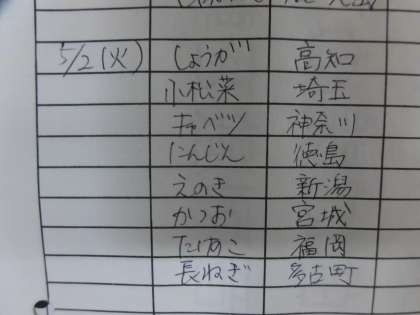 5/2(火) しょうが 高知
小松菜 埼玉
キャベツ 神奈川
にんじん 徳島
えのき 新潟
かつお 宮城
たけのこ 福岡
長ねぎ 多古町